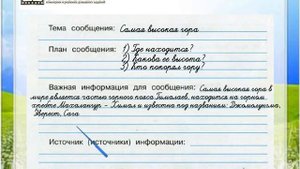 Тема сообщения: Самая высокая гора
План сообщения: 1) Где находится?
2) Какова ее высота?
3) Кто покорял гору?
Важная информация для сообщения: Самая высокая гора в
мире является частью горного пояса Гималаев, находится на горном
хребте Махалангур – Химал и известна под названием: Джомолунгма,
Эверест, Сага
Источник (источники) информации: